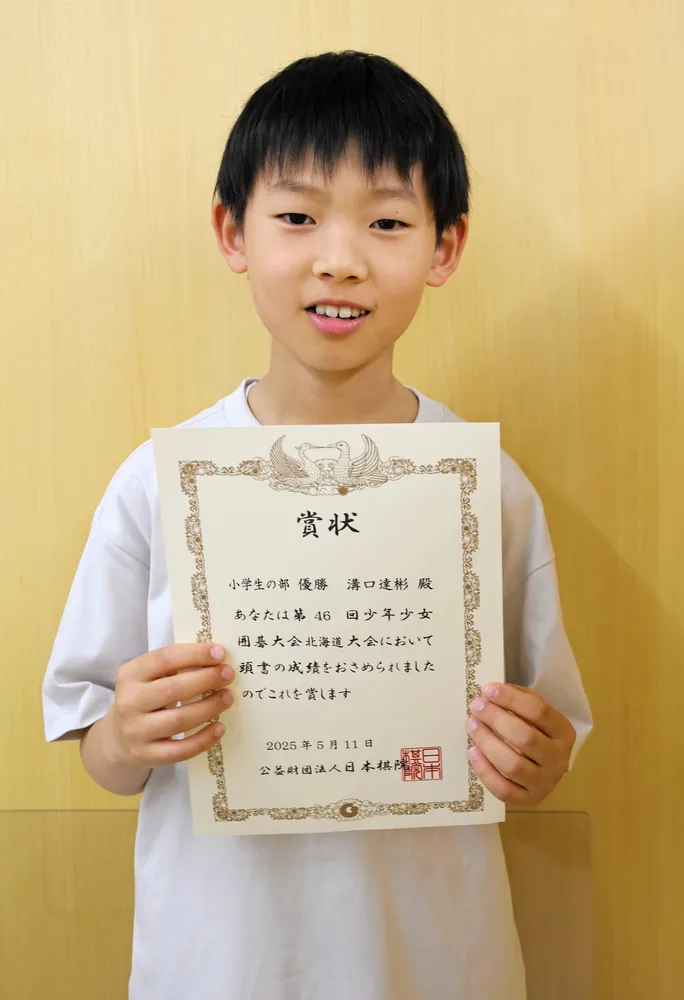 賞状
小学生の部 優勝 溝口達彬 殿
あなたは第 46 回少年少女
囲碁大会北海道大会において
頭書の成績をおさめられました
のでこれを賞します
2025年5月11日
公益財団法人日本棋院
日本
棋院